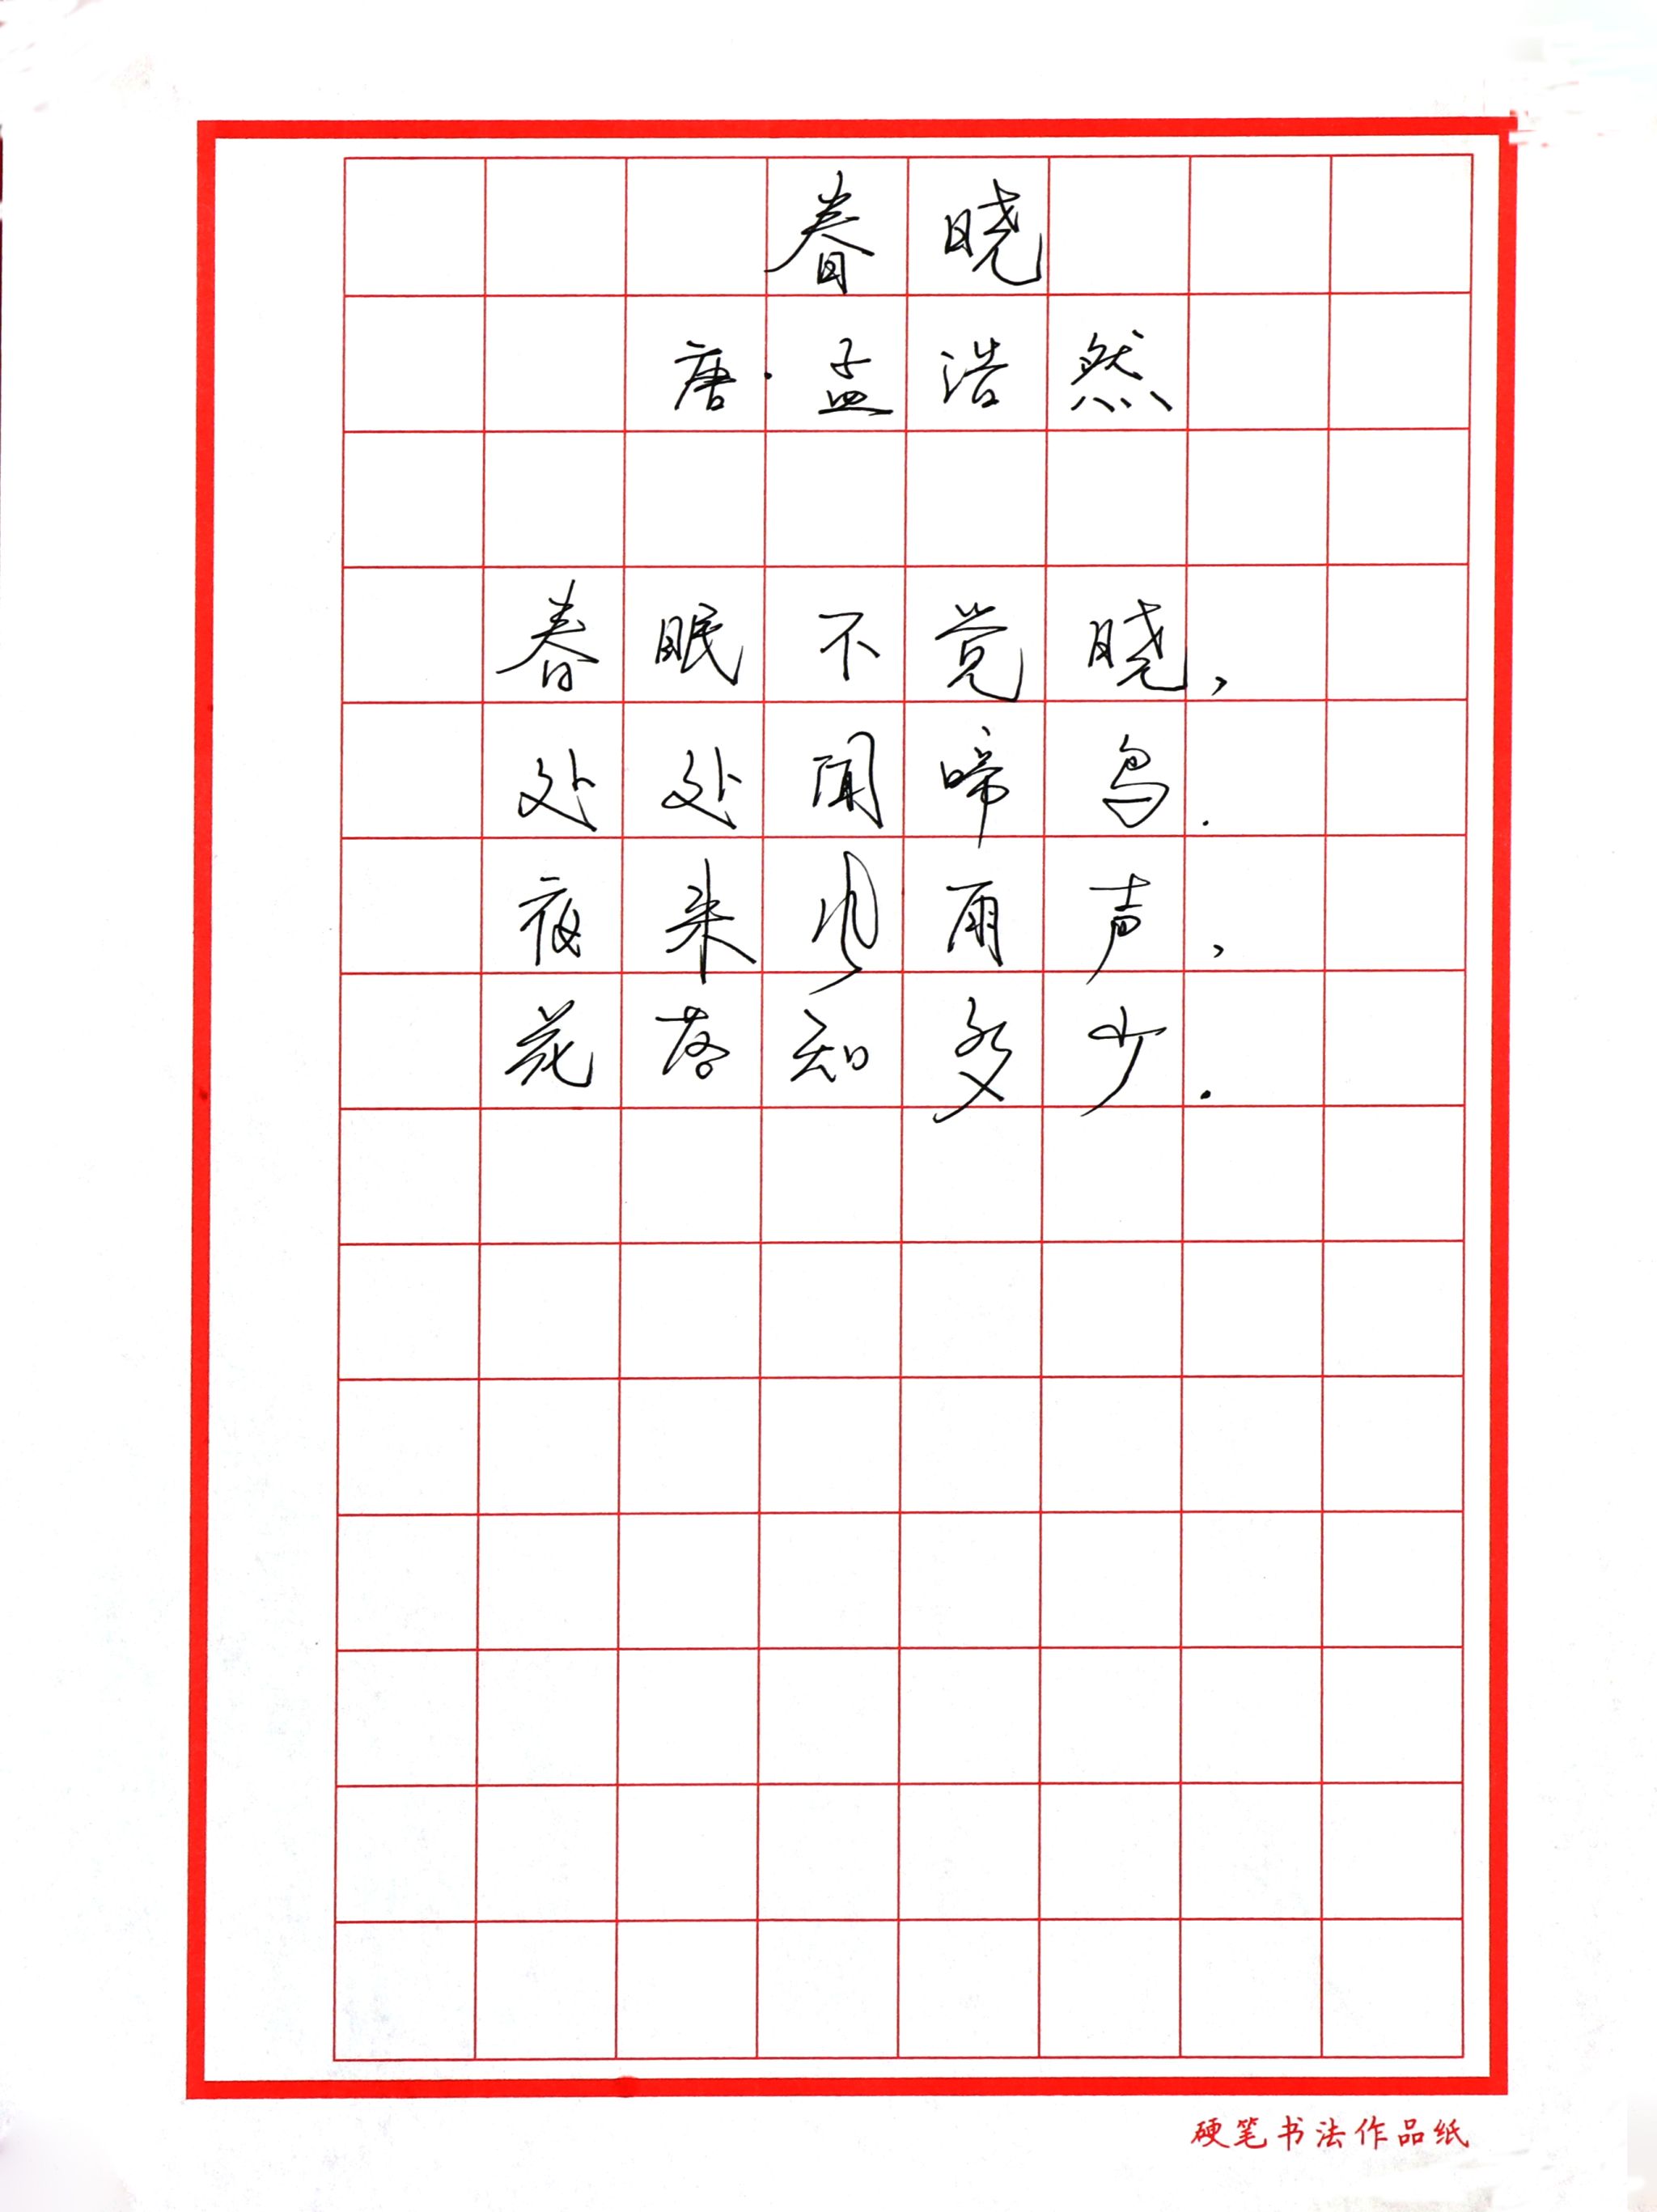 春晓
唐·孟浩然
春眠不觉晓,
处处闻啼鸟.
夜来风雨声,
花落知多少.
硬笔书法作品纸